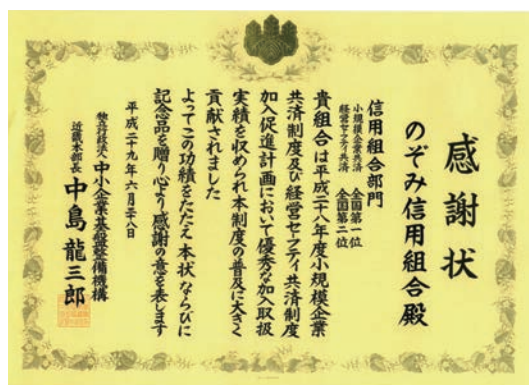 感謝状
のぞみ信用組合殿
信用組合部門
小規模企業共済 全国第一位
経営セーフティ共済 全国第二位
貴組合は平成二十八年度小規模企業
共済制度及び経営セーフティ共済制度
加入促進計画において優秀な加入取扱
実績を収められ本制度の普及に大きく
貢献されました
よってこの功績をたたえ本状ならびに
記念品を贈り心より感謝の意を表します
平成二十九年六月二十八日
独立行政法人 中小企業基盤整備機構
近畿本部長 中島龍三郎